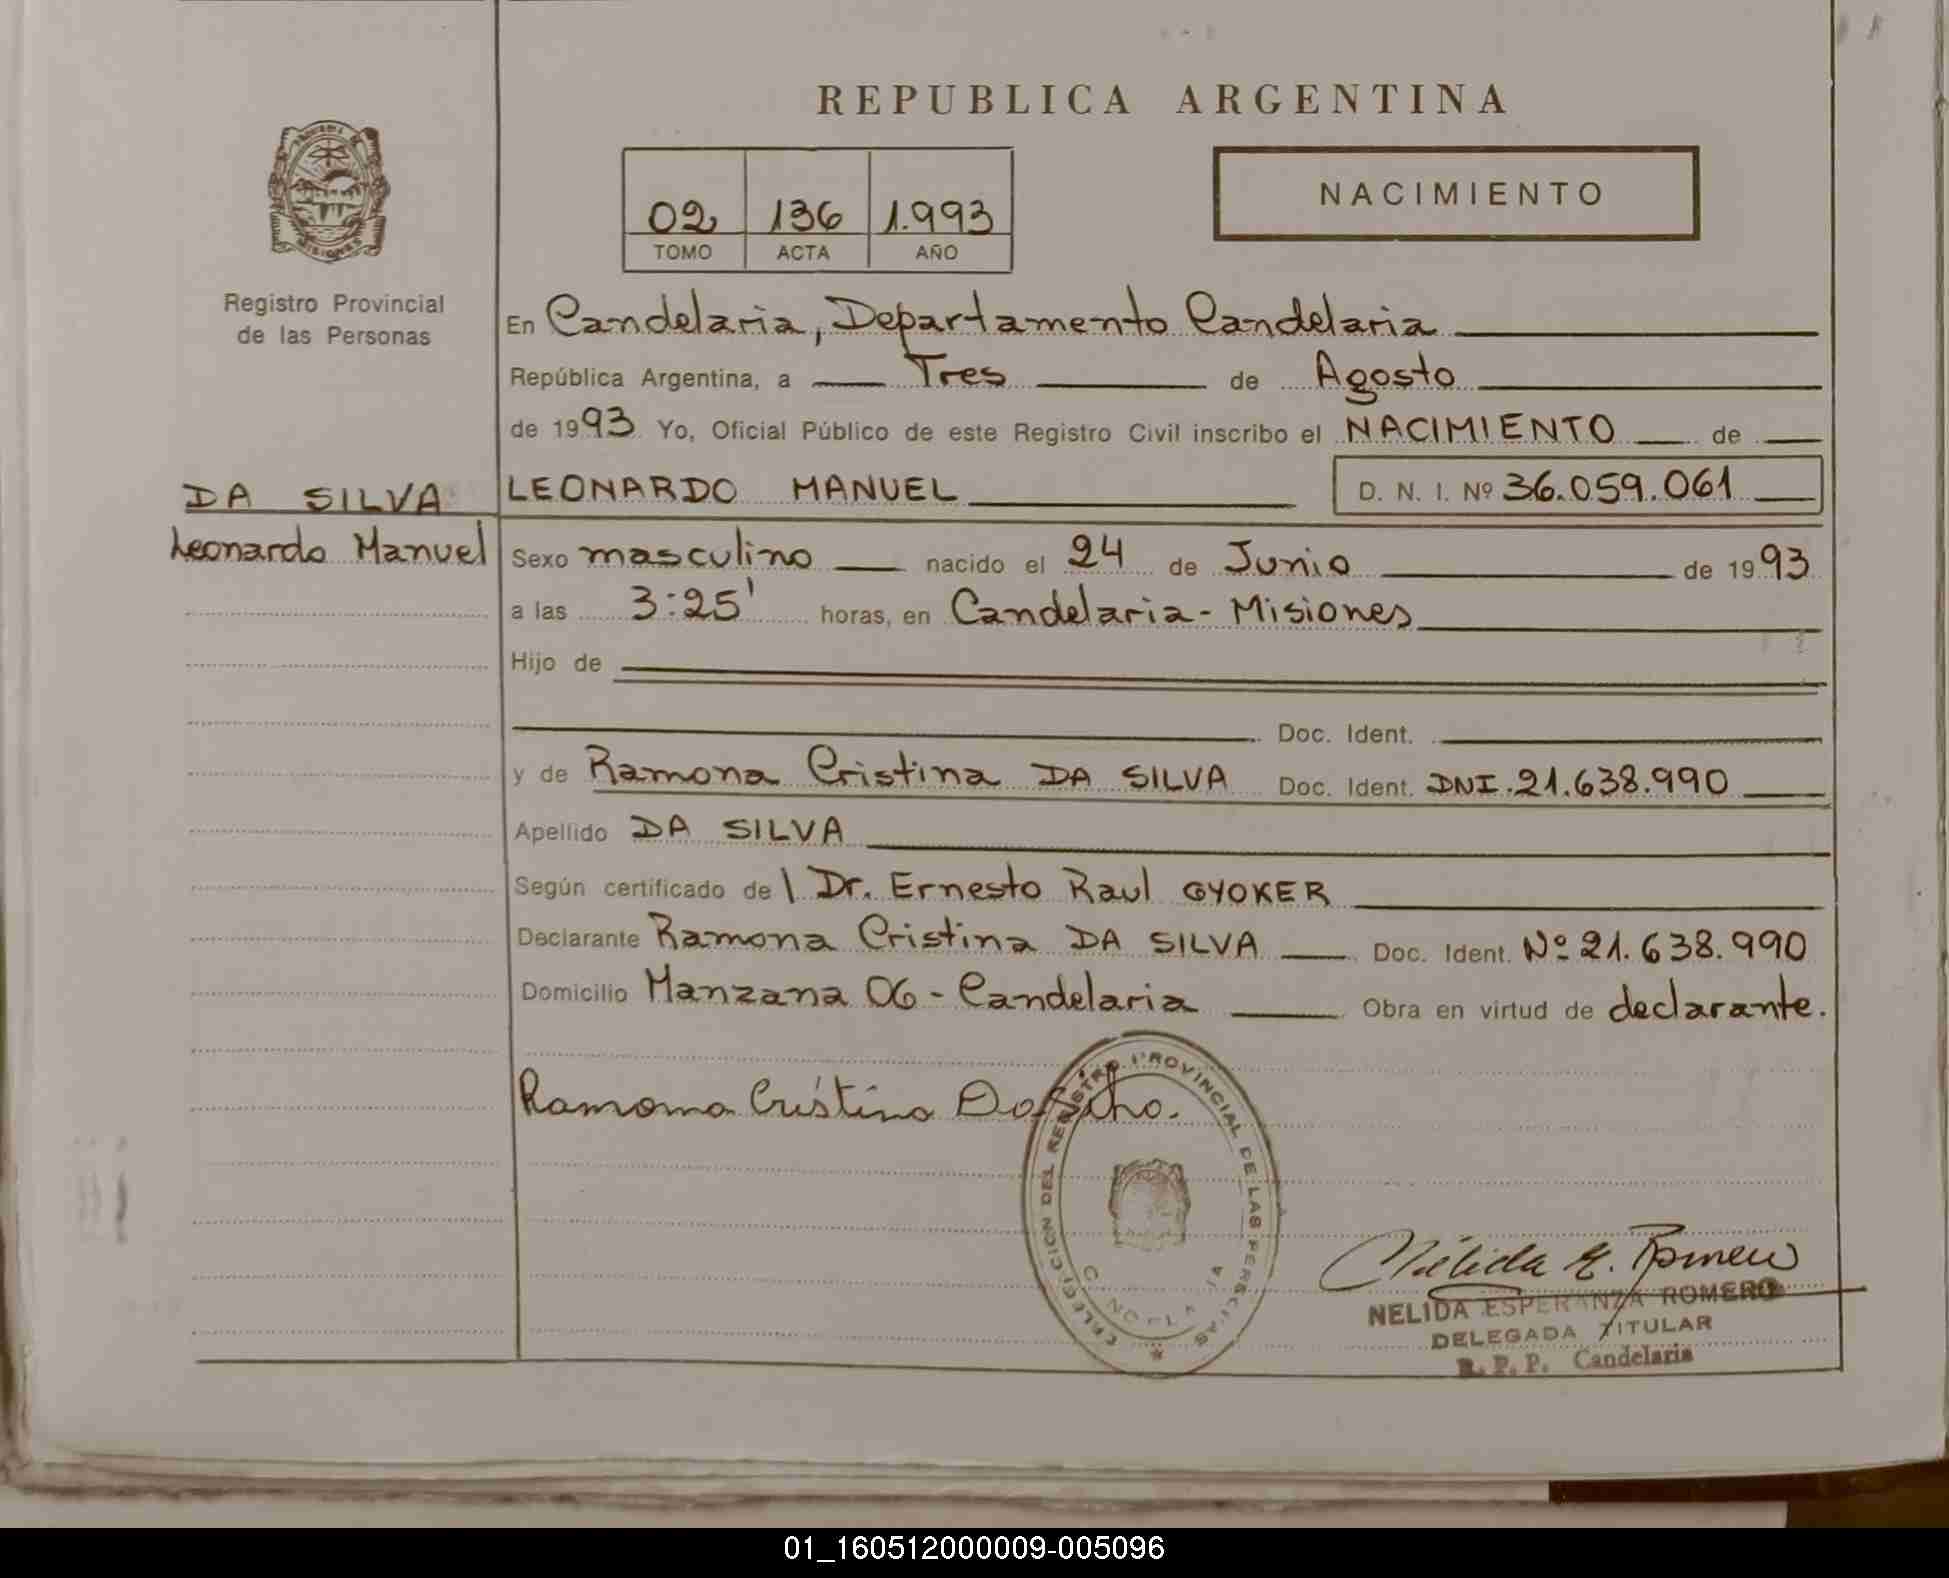 REPUBLICA ARGENTINA
02 136 1.993
TOMO ACTA AÑO
NACIMIENTO
MISIONES
Registro Provincial
de las Personas
En Candelaria, Departamento Candelaria
República Argentina, a Tres de Agosto
de 1993 Yo, Oficial Público de este Registro Civil inscribo el NACIMIENTO de
DA SILVA LEONARDO MANUEL D. N. I. Nº 36.059.061
Leonardo Manuel Sexo masculino nacido el 24 de Junio de 1993
a las 3:25' horas, en Candelaria - Misiones
Hijo de
Doc. Ident.
y de Ramona Cristina DA SILVA Doc. Ident. DNI.21.638.990
Apellido DA SILVA
Según certificado de l Dr. Ernesto Raul GYOKER
Declarante Ramona Cristina DA SILVA Doc. Ident. Nº 21.638.990
Domicilio Manzana 06 - Candelaria Obra en virtud de declarante.
Ramona Cristina Da
DEL REGISTRO PROVINCIAL DE LAS PERSONAS
Nélida E. Romero
NELIDA ESPERANZA ROMERO
DELEGADA TITULAR
R. P. P. Candelaria
01_160512000009-005096